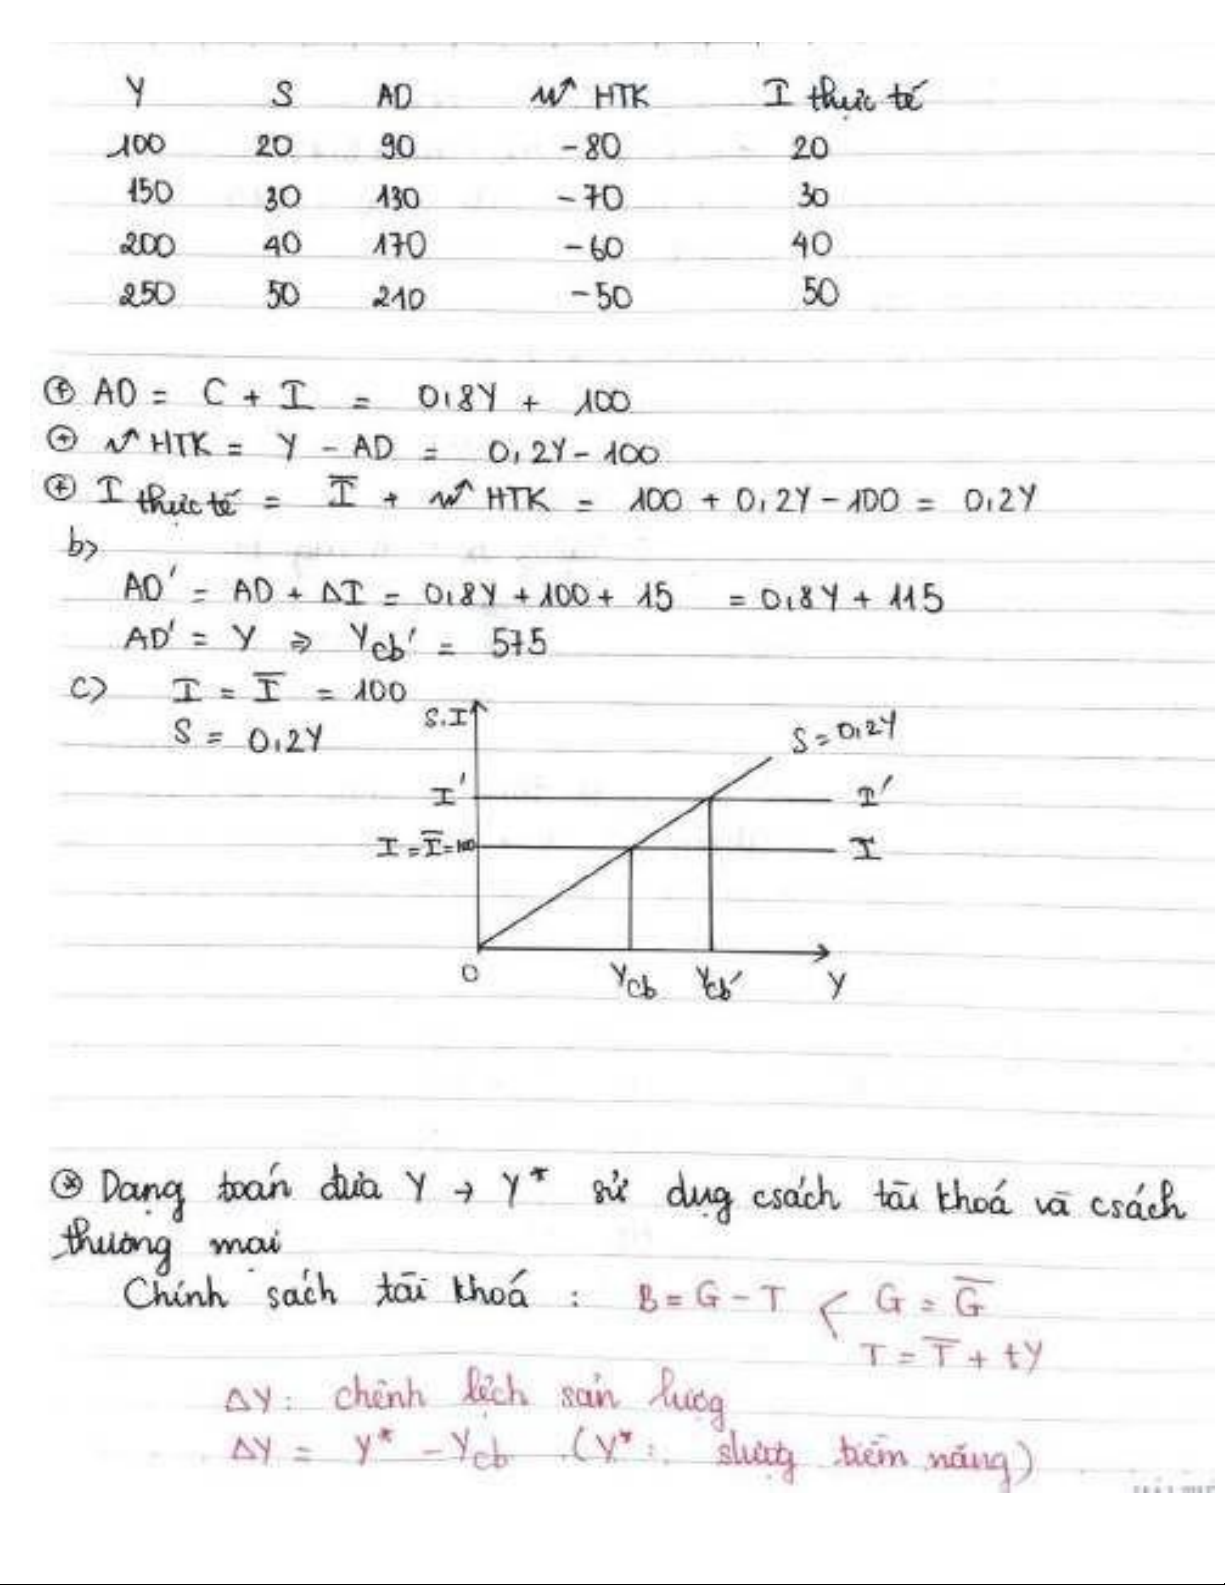 Y S AD ~ HTK I thực tế
100 20 90 -80 20
150 30 130 -70 30
200 40 170 -60 40
250 50 210 -50 50
⊕ AD = C + I = 0,8Y + 100
⊕ ~ HTK = Y - AD = 0,2Y - 100
⊕ I thực tế = Ī + ~ HTK = 100 + 0,2Y - 100 = 0,2Y
b>
AD' = AD + ΔI = 0,8Y + 100 + 15 = 0,8Y + 115
AD' = Y => Ycb' = 575
c> I = Ī = 100
S = 0,2Y
S.I
S = 0,2Y
I' I'
I = Ī = 100 I
O Ycb Ycb' Y
⊛ Dạng toán đưa Y → Y* sử dụng csách tài khoá và csách
thương mại
Chính sách tài khoá : B = G - T < G = G̅
T = T̅ + tY
ΔY : chênh lệch sản lượg
ΔY = Y* - Ycb (Y* : slượg tiềm năng)